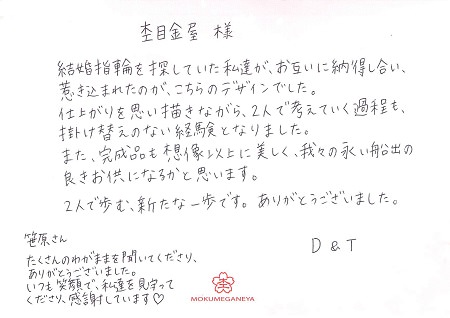 杢目金屋 様
結婚指輪を探していた私達が、お互いに納得し合い、
惹き込まれたのが、こちらのデザインでした。
仕上がりを思い描きながら、2人で考えていく過程も、
掛け替えのない経験となりました。
また、完成品も想像以上に美しく、我々の永い船出の
良きお供になるかと思います。
2人で歩む、新たな一歩です。ありがとうございました。
D & T
笹原さん
たくさんのわがままを聞いてくださり、
ありがとうございました。
いつも笑顔で、私達を見守って
くださり、感謝しています♡
MOKUMEGANEYA